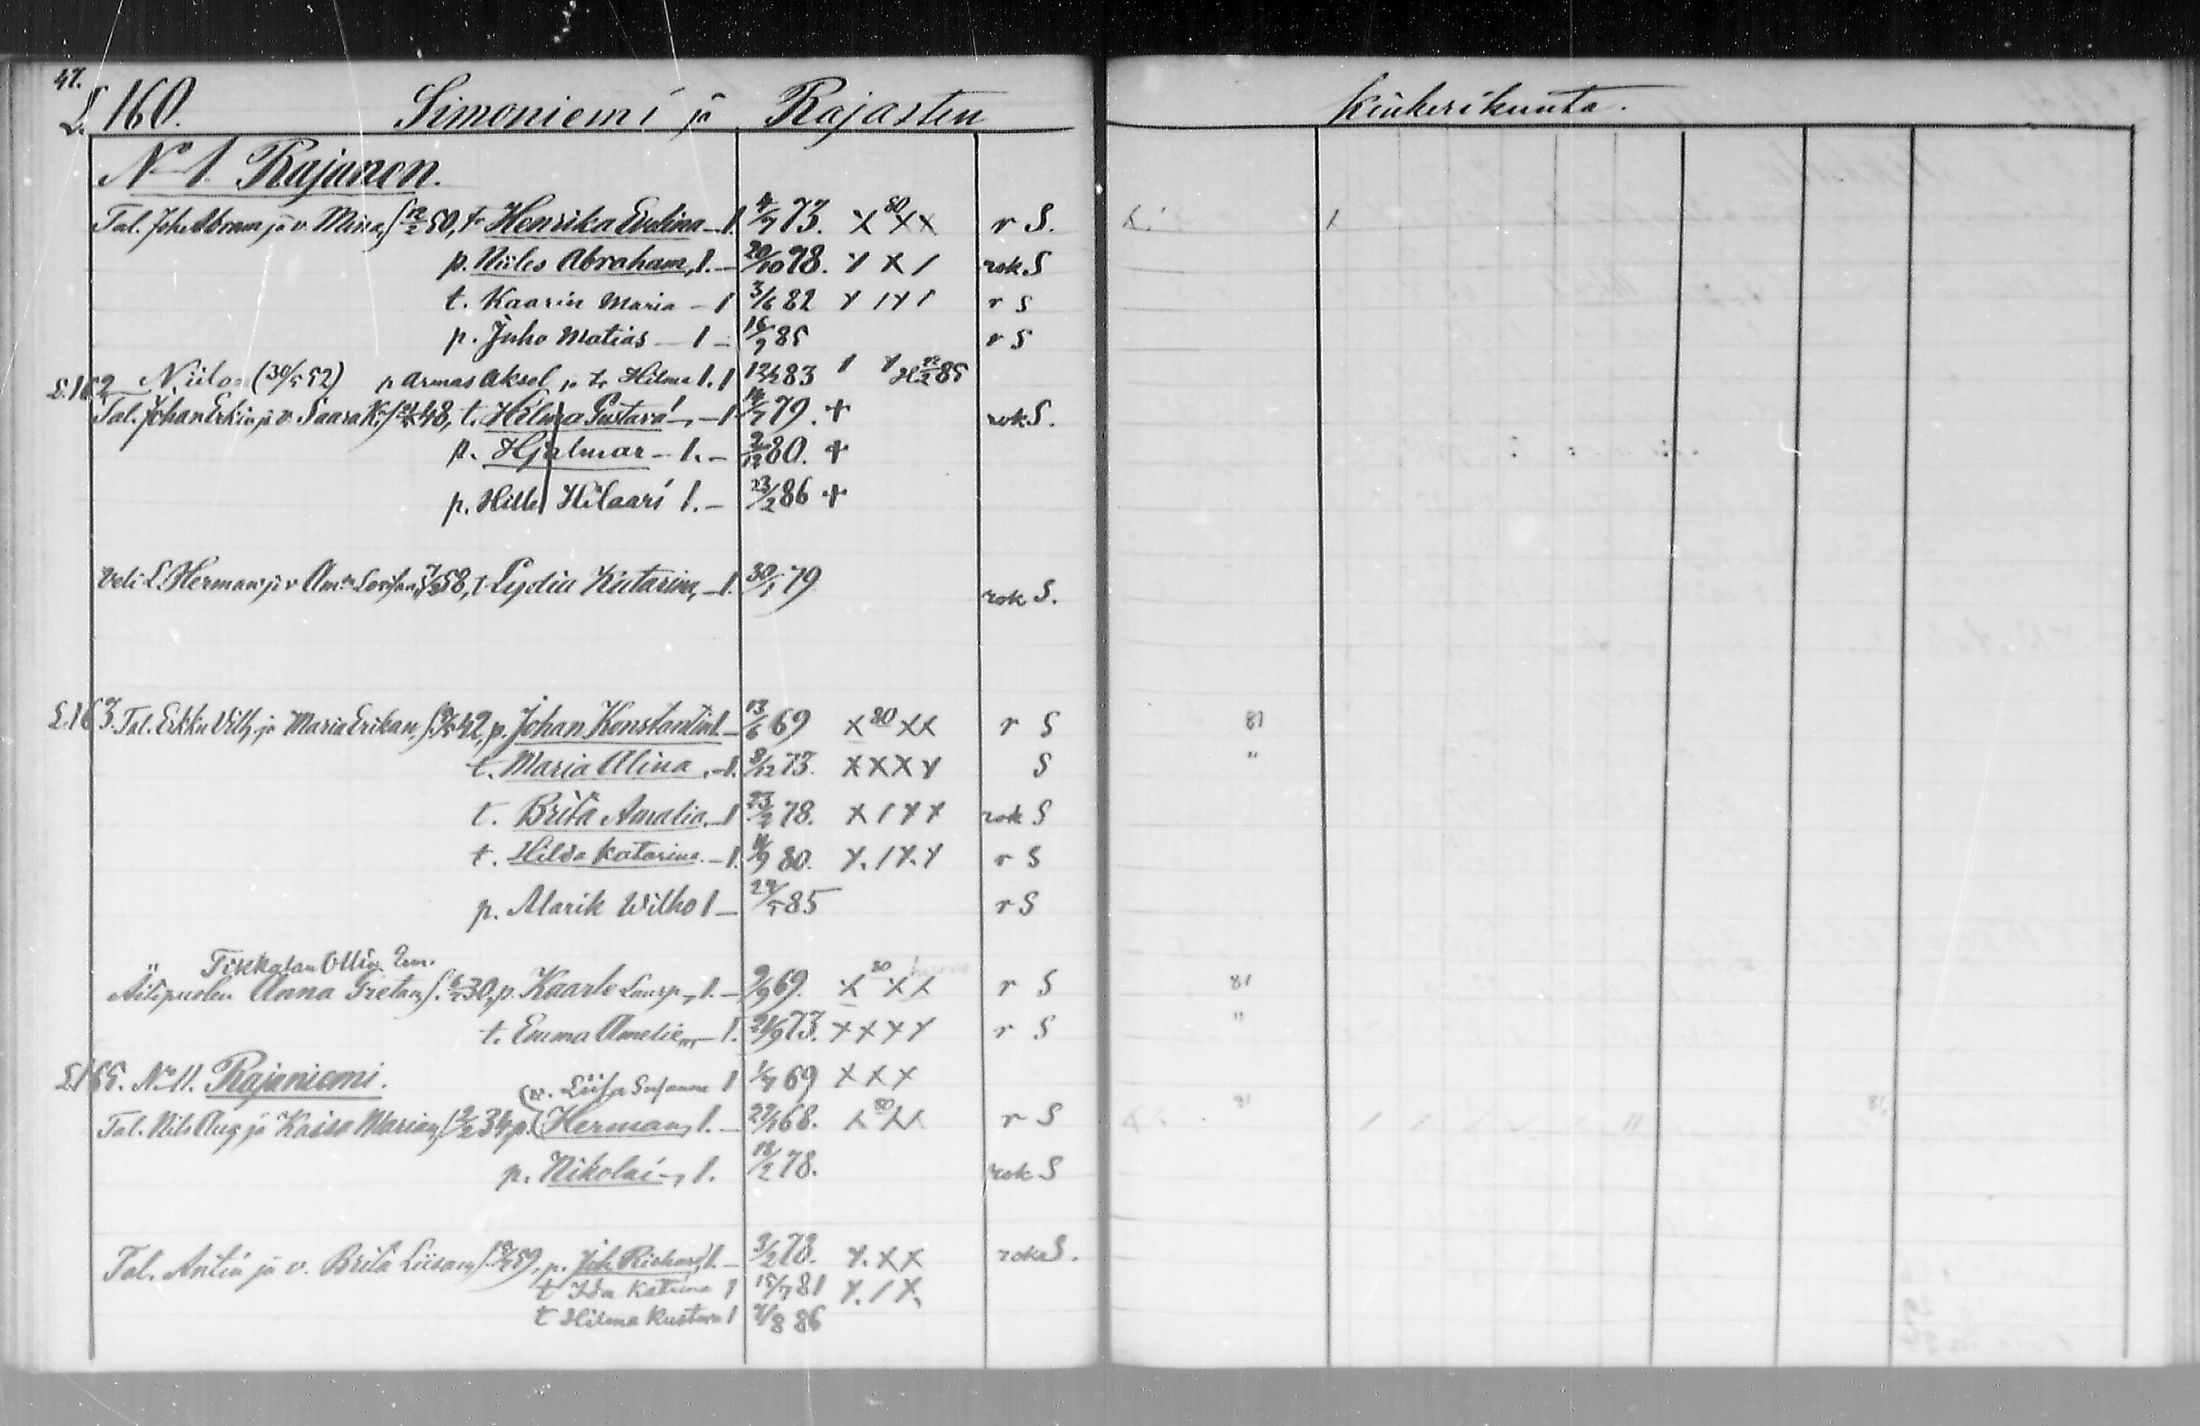 47.
L. 160. Simoniemi ja Rajasten Kinkerikunta.
No 1. Rajanen.
Tal. Joh. Abram ja v. Mina, f. 12/2 50, t. Henrika Evelina 1. 4/7 73. x 80 x x r S.
p. Niiles Abraham, 1. 20/10 78. x x / rok S
t. Kaarin Maria - 1 3/6 82 r S
p. Juho Matias - 1 - 16/9 85 r S
L. 162 Niilo (30/5 52) p Armas Aksel ja t. Hilma 1. 1 12/2 83
Tal. Johan Erkin ja v. Saara K. 48, t. Hilma Gustava, - 1 79. + rok S.
p. Hjalmar - 1. - 2/12 80. +
p. Hille Hilaari 1. - 23/2 86 +
Veli L. Herman ja v 58, t. Lydia Katarina, - 1. 30/1 79 rok S.
L. 163. Tal. Erkki Vilh. ja Maria Erikan, 42, p. Johan Konstantin 1. - 13/6 69 x 80 x x r S 81
t. Maria Alina, - 1. 8/12 73. x x x x S "
t. Brita Amalia, - 1 23/2 78. x / x x rok S
t. Hilda Katarina. - 1. 11/9 80. x. / x. x r S
p. Alarik Wilho 1 - 24/5 85 r S
Tikkalan Ollin
Äitipuolen Anna Gretan, 30, p. Kaarlo 1. - 9/9 69. x 80 x x r S 81
t. Emma Amelie - 1. 21/9 73. x x x x r S "
L. 165. No 11. Rajaniemi. v. Liisa Susanna 1 1/7 69 x x x
Tal. Nils Aug ja Kaisa Marian, 34, p. Herman, 1. - 27/1 68. x 80 x x r S 81
p. Nikolai -, 1. 18/2 78. rok S
Tal. Antin ja v. Brita Liisan, 59, p. Joh. Richard, 1. - 3/2 78. x. x x rok S.
t Ida Katrina 1 15/7 81 x. / x.
t Hilma Kustava 1 86